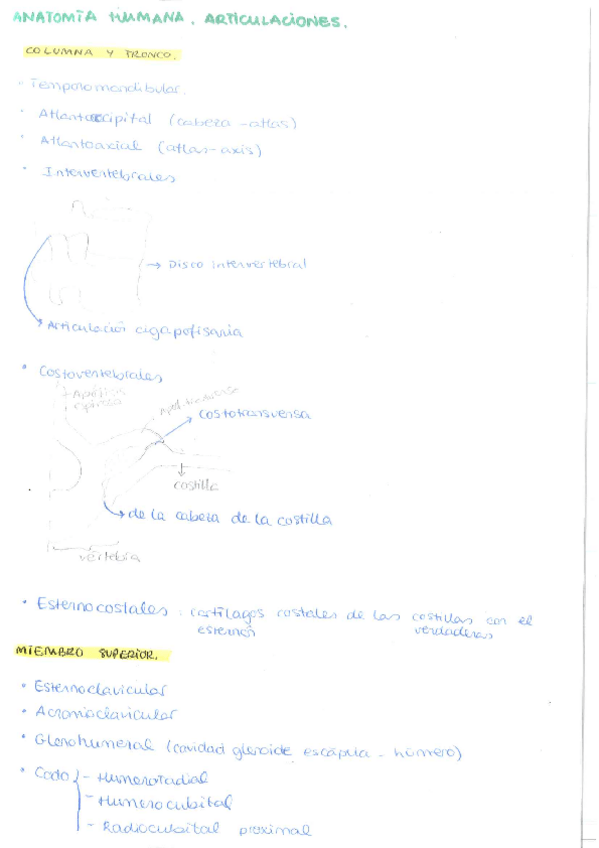 ANATOMÍA HUMANA. ARTICULACIONES.
COLUMNA Y TRONCO.
· Temporomandibular.
· Atlantoccipital (cabeza - atlas)
· Atlantoaxial (atlas - axis)
· Intervertebrales
→ Disco intervertebral
Articulación cigapofisaria
· Costovertebrales
Apófisis
espinosa
apóf. transversa
costotransversa
costilla
de la cabeza de la costilla
vértebra
· Esternocostales: cartílagos costales de las costillas con el
esternón verdaderas
MIEMBRO SUPERIOR.
· Esternoclavicular
· Acromioclavicular
· Glenohumeral (cavidad glenoide escápula - húmero)
· Codo - Humeroradial
- Humerocubital
- Radiocubital proximal